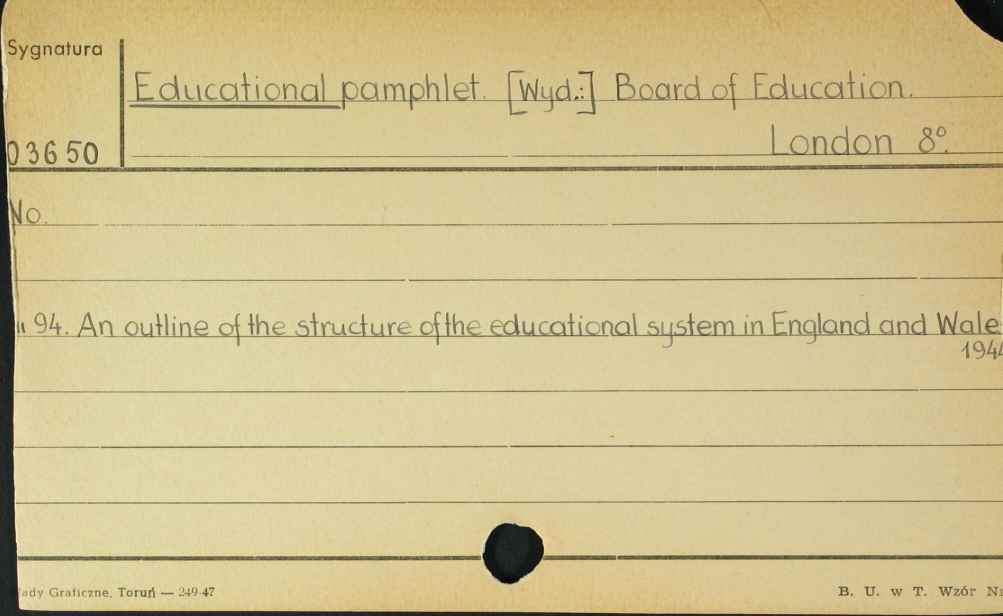 Sygnatura
Educational pamphlet. [Wyd.:] Board of Education.
03650
London 8°.
No.
" 94. An outline of the structure of the educational system in England and Wale
1944
ady Graficzne, Toruń — 249-47
B. U. w T. Wzór N.